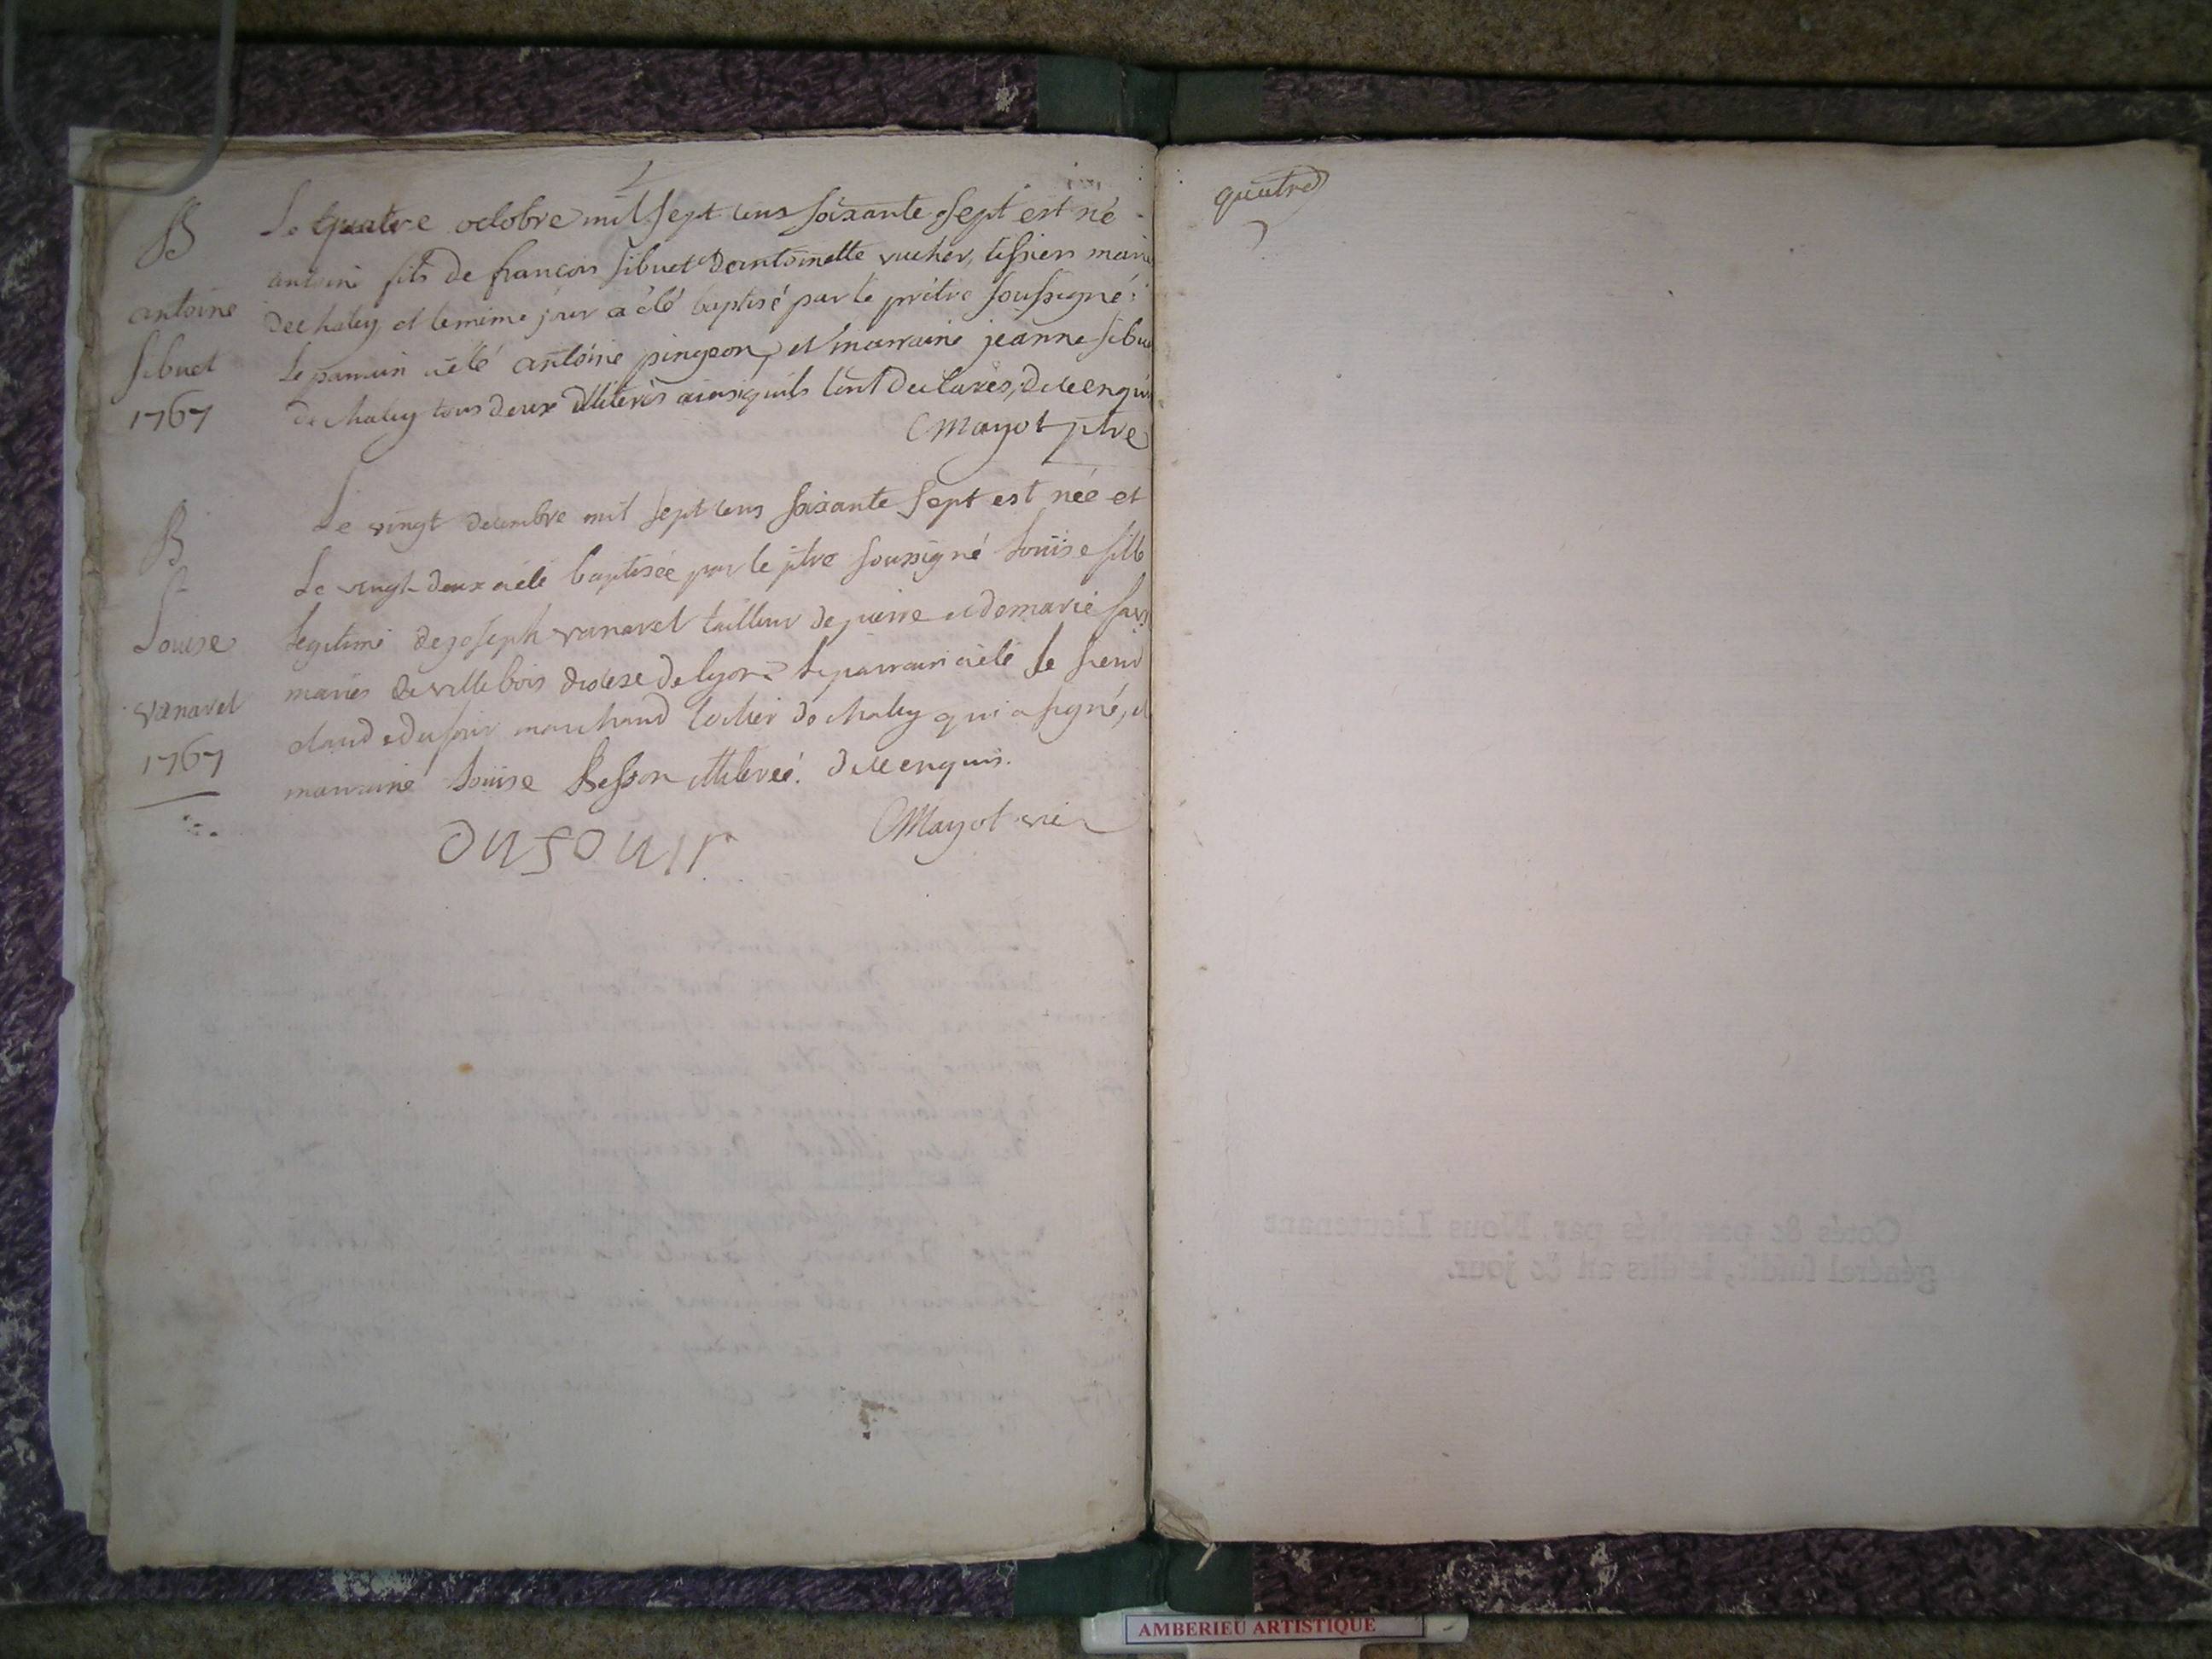 B
antoine
sibuet
1767
Le quatre octobre mil sept cens soixante sept est né
antoine fils de françois sibuet d'antoinette vucher, tissiers marié
de chaley, et le même jour a été baptisé par le prêtre soussigné:
le parrain a été antoine pingeon, et marraine jeanne sibue
de chaley tous deux illiterés ainsi qu'ils l'ont declarés, de ce enqui
Mayot ptre
B
Louise
vanaret
1767
Le vingt decembre mil sept cens soixante sept est née et
le vingt-deux a été baptisée par le ptre soussigné Louise fille
legitime de joseph vanaret tailleur de pierre et de marie
mariés de villebois diocese de lyon: le parrain a été le sieur
claude dufour marchand de chaley qui a signé, et
marraine Louise Besson illiterée. de ce enquis.
DUFOUIR
Mayot vic
quatre
Cotés & paraphés par Nous Lieutenant
général susdit, lesdits an & jour.
AMBERIEU ARTISTIQUE